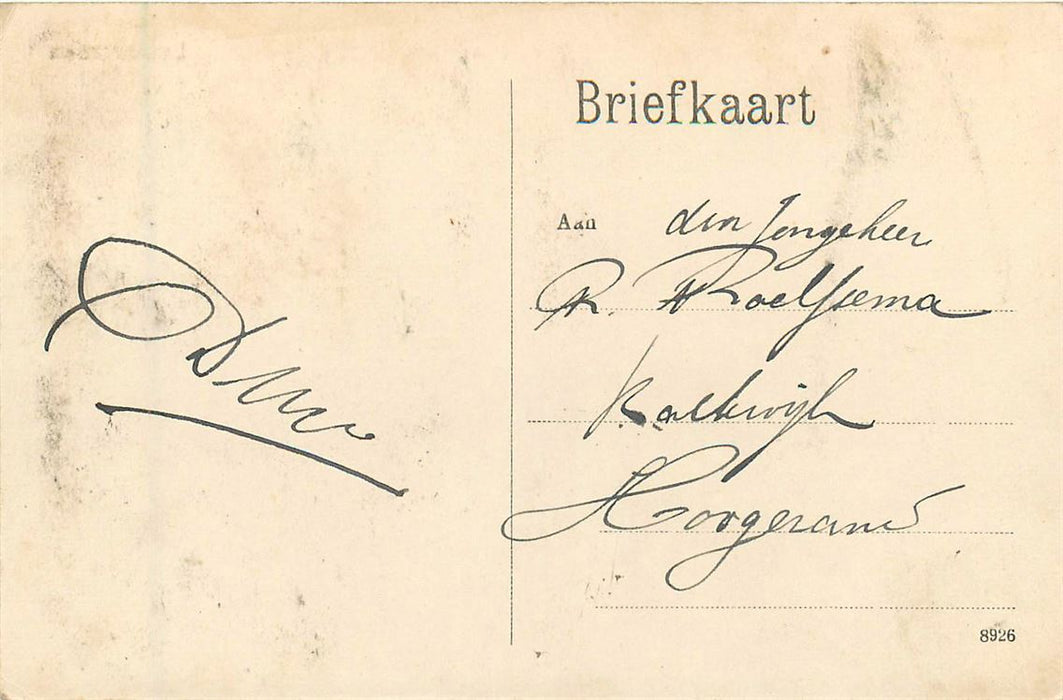 Briefkaart
Aan den Jongeheer
R. Roelfsema
Kalkwijk
Hoogezand
8926